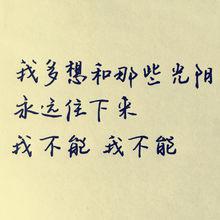 我多想和那些光阴
永远住下来
我不能 我不能